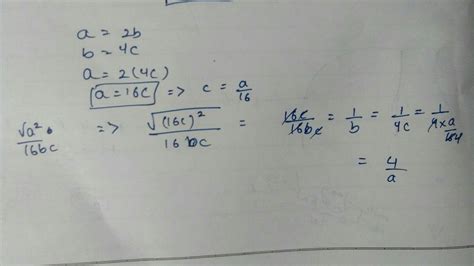 a = 2b
b = 4c
a = 2(4c)
a = 16c => c = a/16
√a²/16bc => √(16c)²/16bc = 16c/16bc = 1/b = 1/4c = 1/4×a/16 4
= 4/a